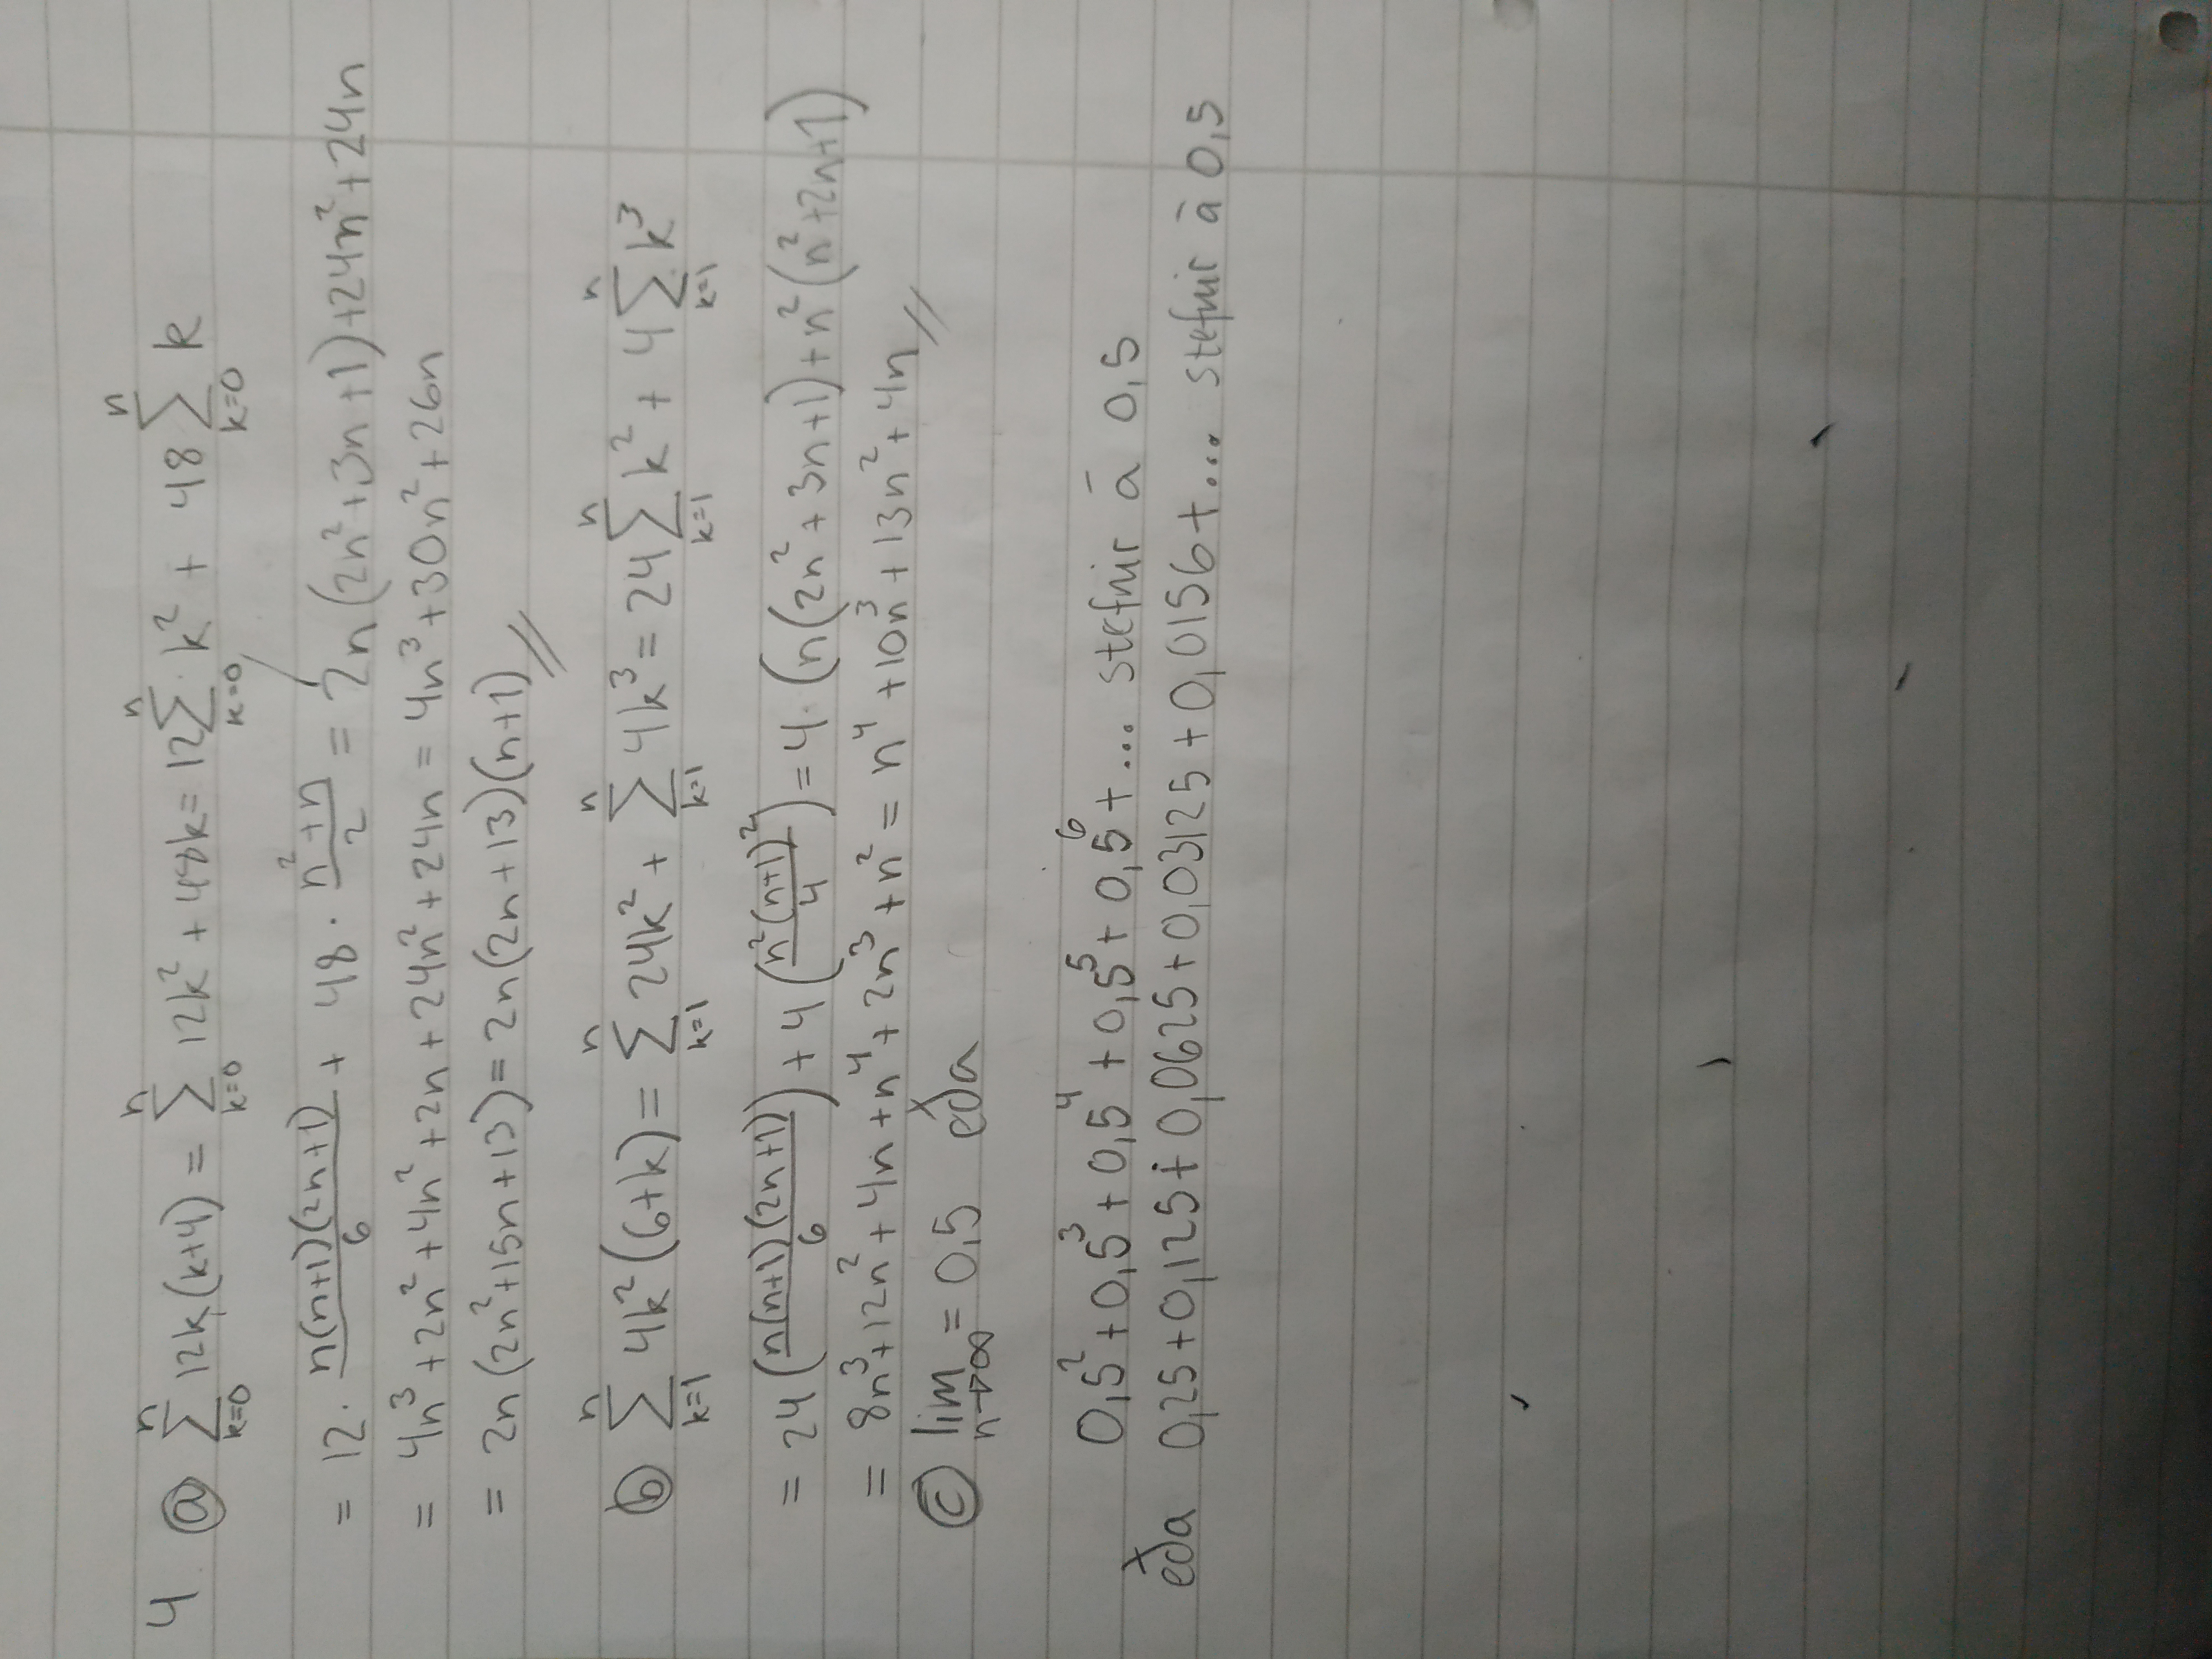 4 ⓐ \sum_{k=0}^{n} 12k(k+4) = \sum_{k=0}^{n} 12k² + 48k = 12 \sum_{k=0}^{n} k² + 48 \sum_{k=0}^{n} k
= 12 · \frac{n(n+1)(2n+1)}{6} + 48 · \frac{n²+n}{2} = 2n(2n²+3n+1)+24n²+24n
= 4n³+2n²+4n²+2n+24n²+24n = 4n³+30n²+26n
= 2n(2n²+15n+13) = 2n(2n+13)(n+1)//
ⓑ \sum_{k=1}^{n} 4k²(6+k) = \sum_{k=1}^{n} 24k² + \sum_{k=1}^{n} 4k³ = 24 \sum_{k=1}^{n} k² + 4 \sum_{k=1}^{n} k³
= 24 (\frac{n(n+1)(2n+1)}{6}) + 4 (\frac{n²(n+1)²}{4}) = 4·(n(2n²+3n+1)+n²(n²+2n+1)
= 8n³+12n²+4n+n⁴+2n³+n² = n⁴+10n³+13n²+4n//
ⓒ \lim_{n→∞} = 0,5 eða
0,5²+0,5³+0,5⁴+0,5⁵+0,5⁶+... stefnir á 0,5
eða 0,25+0,125+0,0625+0,03125+0,0156+... stefnir á 0,5